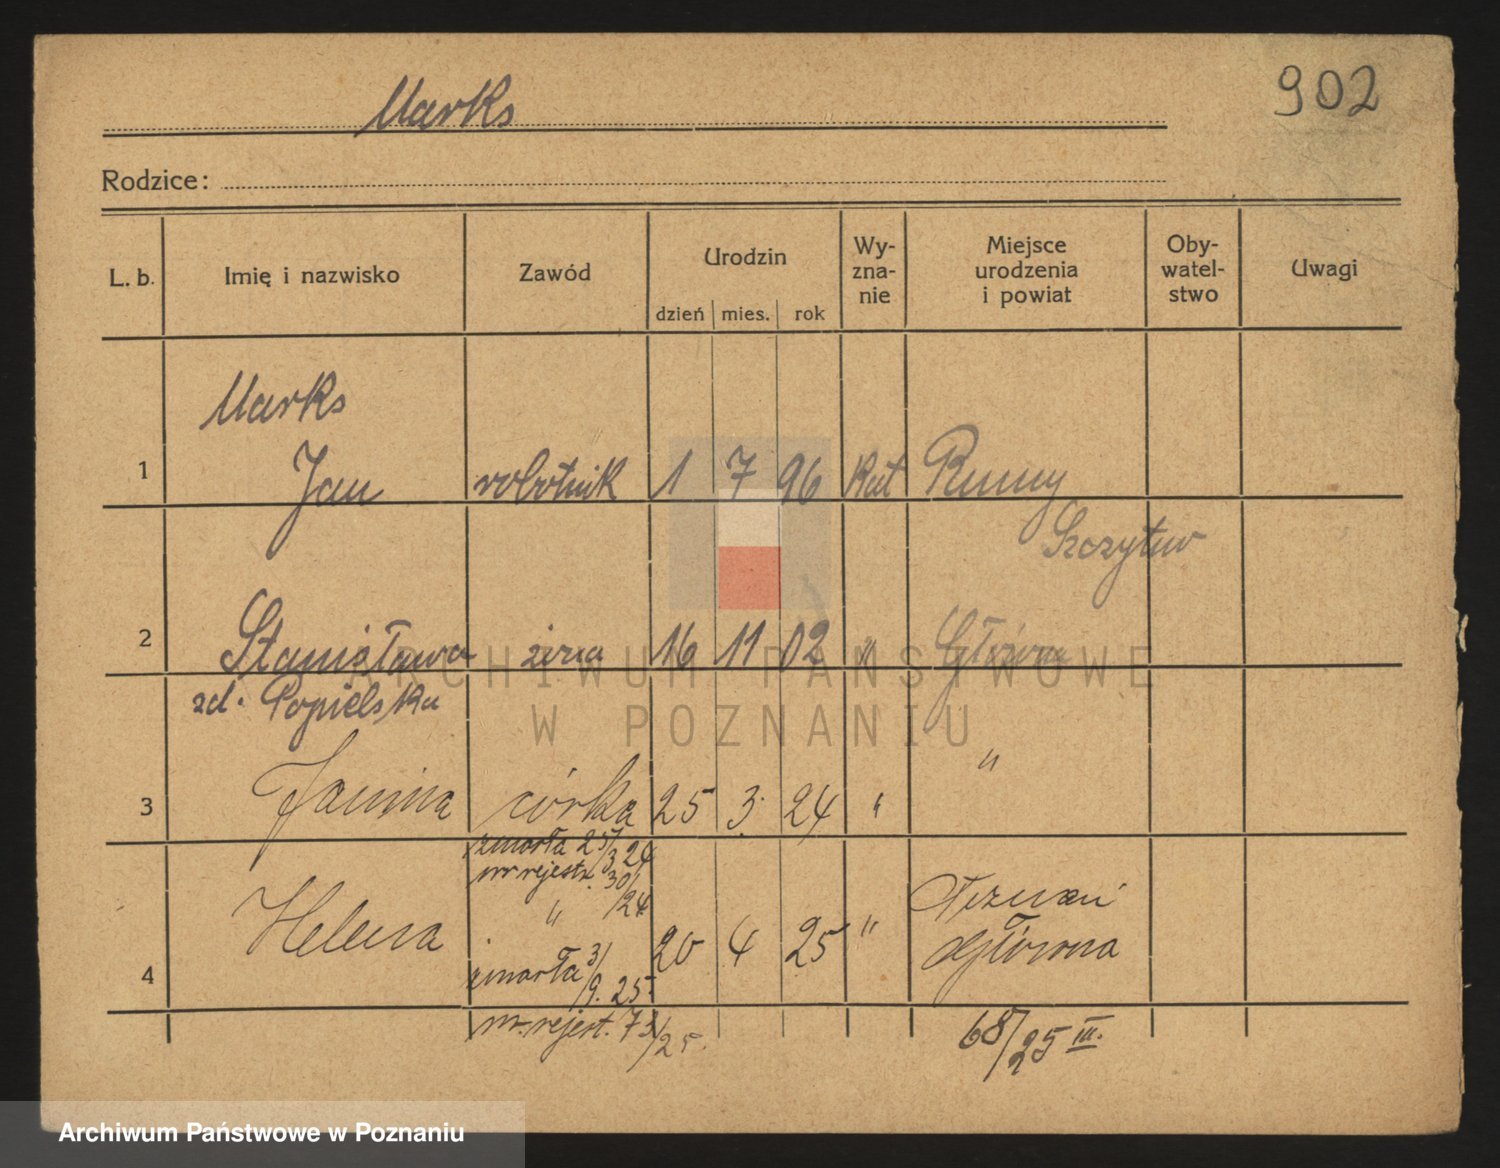 Marks
902
Rodzice:
L. b. Imię i nazwisko Zawód Urodzin dzień mies. rok Wy-zna-nie Miejsce urodzenia i powiat Oby-watel-stwo Uwagi
Marks
1 Jan robotnik 1 7 96 kat Rumy
Szczytno
2 Stanisława żona 16 11 02 " Główna
zd. Popielska
"
3 Janina córka 25 3. 24 "
zmarła 25/3 24
nr rejestr. 30/24
4 Helena " 20 4 25 " Poznań Główna
zmarła 3/9. 25.
nr. rejest. 73/25.
68/25 III.
ARCHIWUM PAŃSTWOWE
W POZNANIU
Archiwum Państwowe w Poznaniu